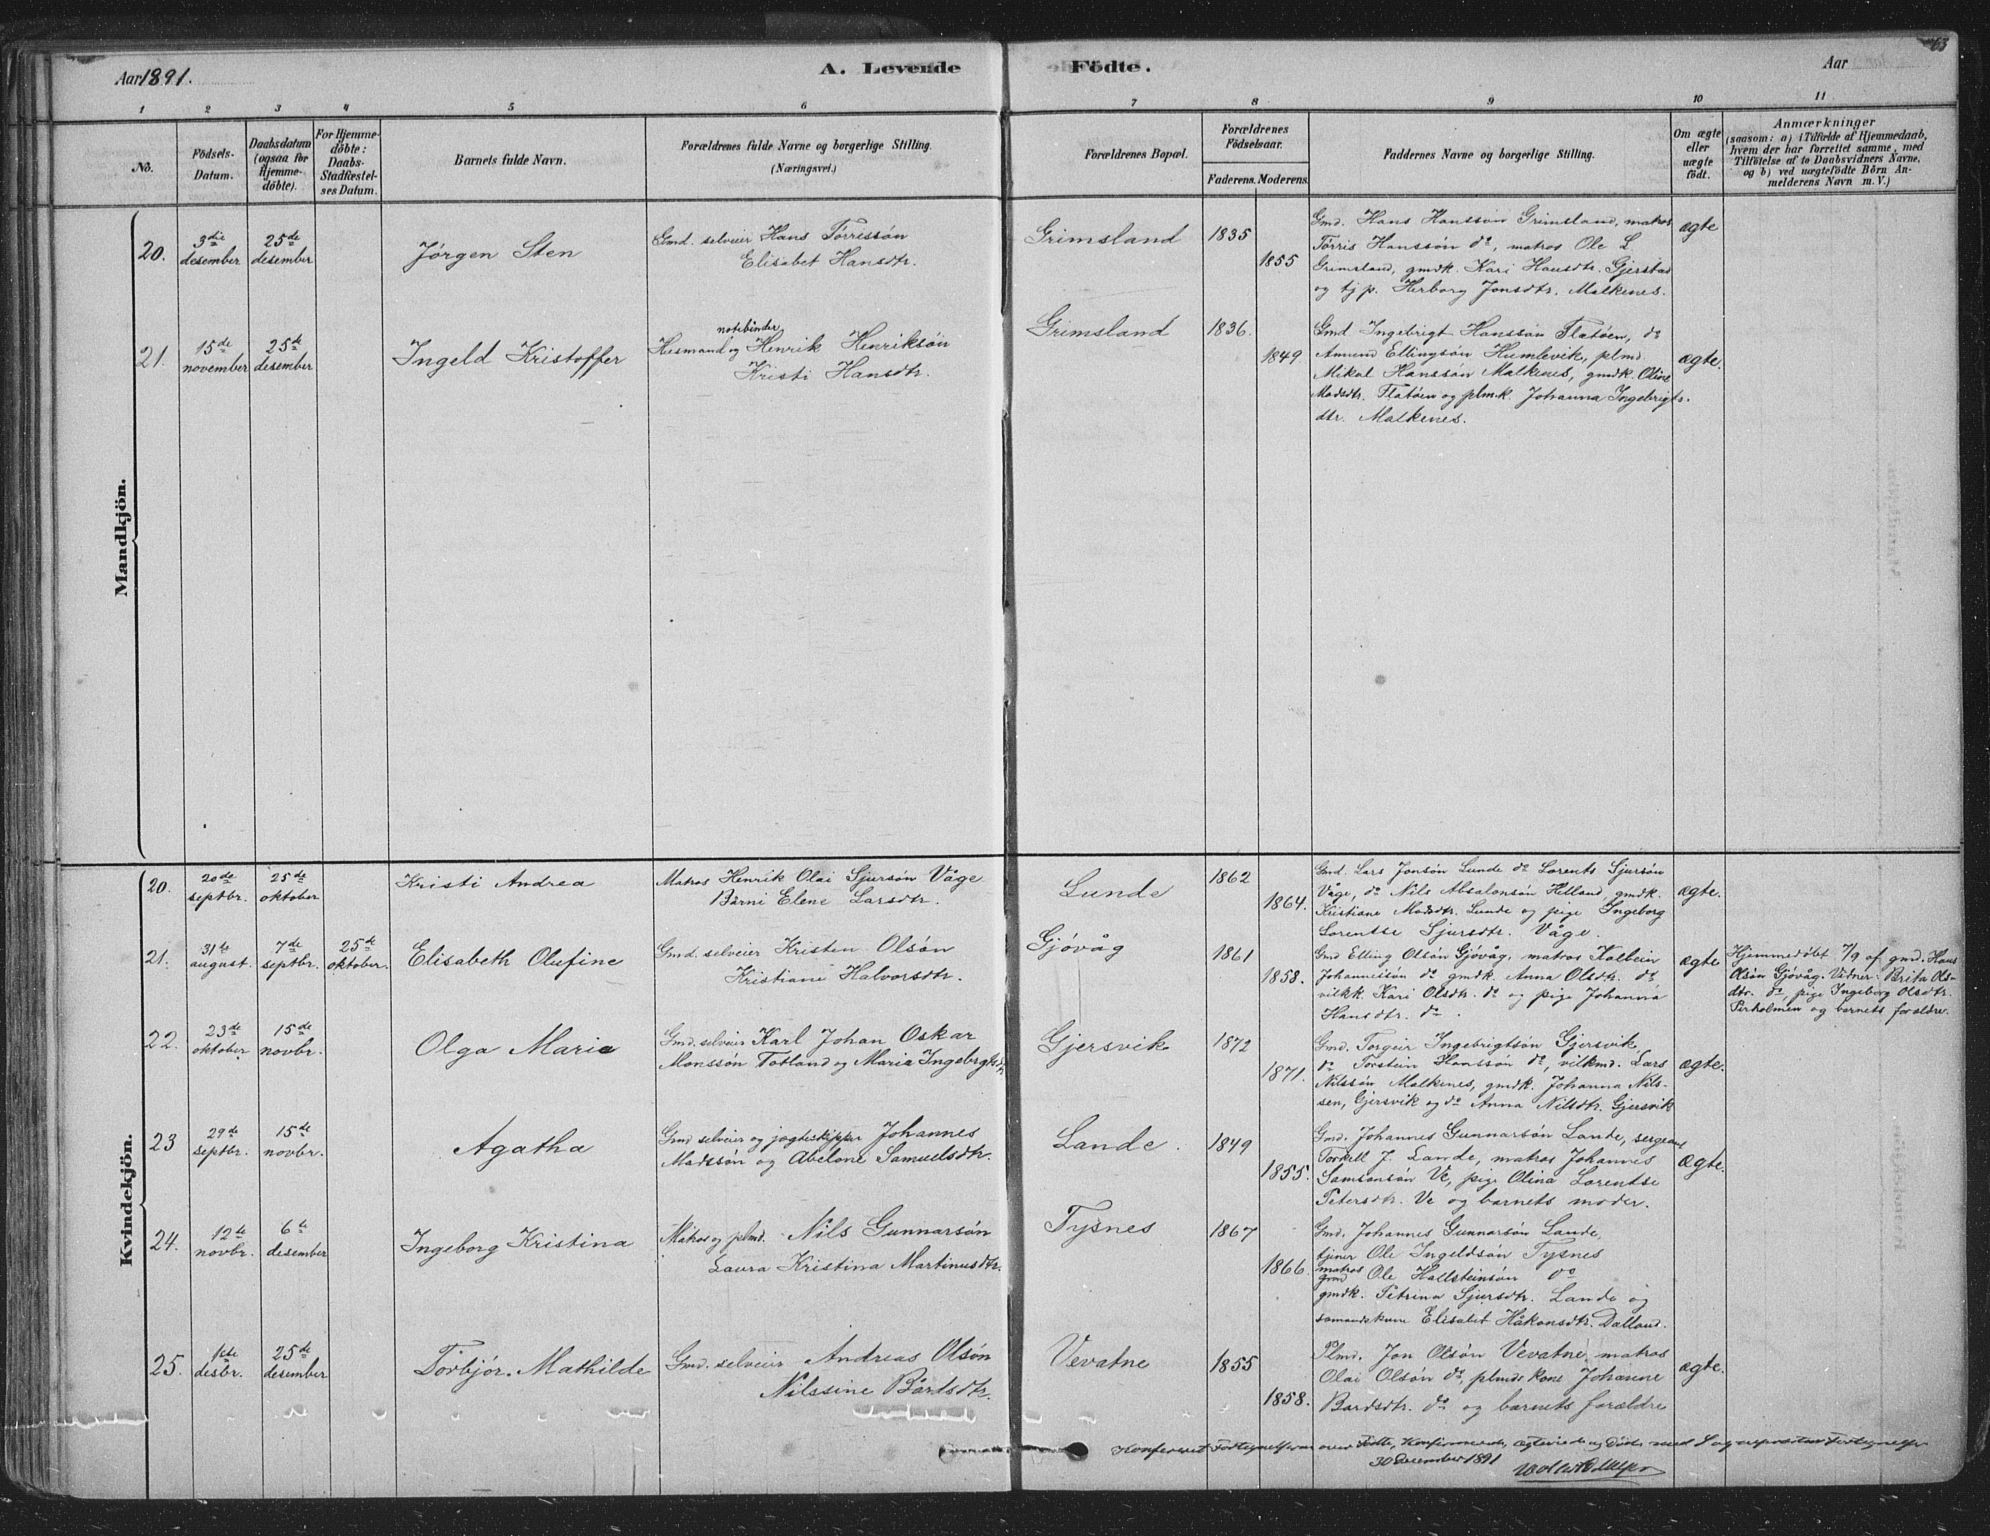 63
Aar 1891.
A. Levende
Födte.
Aar
1 2 3 4 5 6 7 8 9 10 11
No.
Födsels-
Datum.
Daabsdatum
(ogsaa for
Hjemme-
döbte).
For Hjemme-
döbte:
Daabs-
Stadfæstel-
ses Datum.
Barnets fulde Navn.
Forældrenes fulde Navne og borgerlige Stilling.
(Næringsvei.)
Forældrenes Bopæl.
Forældrenes
Födselsaar.
Faderens. Moderens.
Faddernes Navne og borgerlige Stilling.
Om ægte
eller
uægte
födt.
Anmærkninger
(saasom: a) i Tilfælde af Hjemmedaab,
hvem der har forrettet samme, med
Tilföielse af to Daabsvidners Navne,
og b) ved uægtefödte Börn An-
melderens Navn m. V.)
Mandkjön.
20.
3die
desember
25de
desember
Jørgen Sten
Gmd. selveier Hans Tørrissøn
Elisabet Hansdtr.
Grimsland
1835
1855
Gmd. Hans Hanssøn Grimsland, matros
Tørris Hanssøn do, matros Ole L
Grimsland, gmdk. Kari Hansdtr. Gjerstad
og tj p. Herborg Jonsdtr. Malkenes.
ægte
21.
15de
november
25de
desember
Ingeld Kristoffer
notebinder
Husmand og Henrik Henriksøn
Kristi Hansdtr.
Grimsland
1836.
1849.
Gmd Ingebrigt Hanssøn Flatøen, do
Amund Ellingsøn Humlevik, plmd.
Mikal Hanssøn Malkenes, gmdk. Oline
Madsdtr. Flatøen og plmk. Johanna Ingebrigts-
dtr. Malkenes.
ægte.
Kvindekjön.
20.
20de
septbr.
25de
oktober
Kristi Andrea
Matros Henrik Olai Sjursøn Våge
Bårni Elene Larsdtr.
Lunde
1862
1864.
Gmd. Lars Jonsøn Lunde do Lorents Sjursøn
Våge, do Nils Absalonsøn Helland, gmdk.
Kristiane Madsdtr. Lunde og pige Ingeborg
Lorentse Sjursdtr. Våge.
ægte.
21.
31te
august.
7de
septbr.
25de
oktober.
Elisabeth Olufine
Gmd. selveier Kristen Olsøn
Kristiane Halvorsdtr.
Gjøvåg
1861
1858.
Gmd Elling Olsøn Gjøvåg, matros Kolbein
Johannessøn do gmdk. Anna Olsdtr. do
vilkk. Kari Olsdtr. do og pige Johanna
Hansdtr. do.
ægte
Hjemmedøbt 7/9 af gmd. Hans
Olsøn Gjøvåg. Vidner: Brita Ols-
dtr. do, pige Ingeborg Olsdtr.
Pirholmen og barnets forældre.
22.
23de
oktober
15de
novbr.
Olga Marie
Gmd. selveier Karl Johan Oskar
Monssøn Totland og Maria Ingebrgtsdtr.
Gjersvik
1872
1871.
Gmd. Torgeir Ingebrigtsøn Gjersvik,
do Torstein Hanssøn do, vilkmd. Lars
Nilssøn Malkenes, gmdk. Johanna Nils-
sen, Gjersvik og do Anna Nilsdtr. Gjersvik
ægte.
23
29de
septbr.
15de
novbr.
Agatha
Gmd selveier og jægteskipper Johannes
Madssøn og Abelone Samuelsdtr.
Lande.
1849
1855.
Gmd. Johannes Gunnarsøn Lande, sergeant
Torkell J. Lande, matros Johannes
Samsonsøn Ve, pige Olina Lorentse
Petersdtr. Ve og barnets moder.
ægte.
24.
12te
novbr.
6te
desember
Ingeborg Kristina
Matros og plmd. Nils Gunnarsøn
Laura Kristina Martinusdtr.
Tysnes
1867
1866.
Gmd. Johannes Gunnarsøn Lande,
tjener Ole Ingeldsøn Tysnes
matros
gmd Ole Hallsteinsøn do
gmdk. Petrina Sjursdtr. Lande og
Elisabet Håkonsdtr. Dalland.
25.
1ste
desbr.
25de
desember
Torbjør. Mathilde
Gmd. selveier Andreas Olsøn
Nilssine Bårdsdtr.
Vevatne
1855
1858.
Plmd. Jon Olsøn Vevatne, matros
Olai Olsøn do, plmds kone Johanne
Bårdsdtr. do og barnets forældre
ægte.
Konfereret Fortegnelserne over Fødte, Konfirmerede, ægteviede og Døde med
30 December 1891